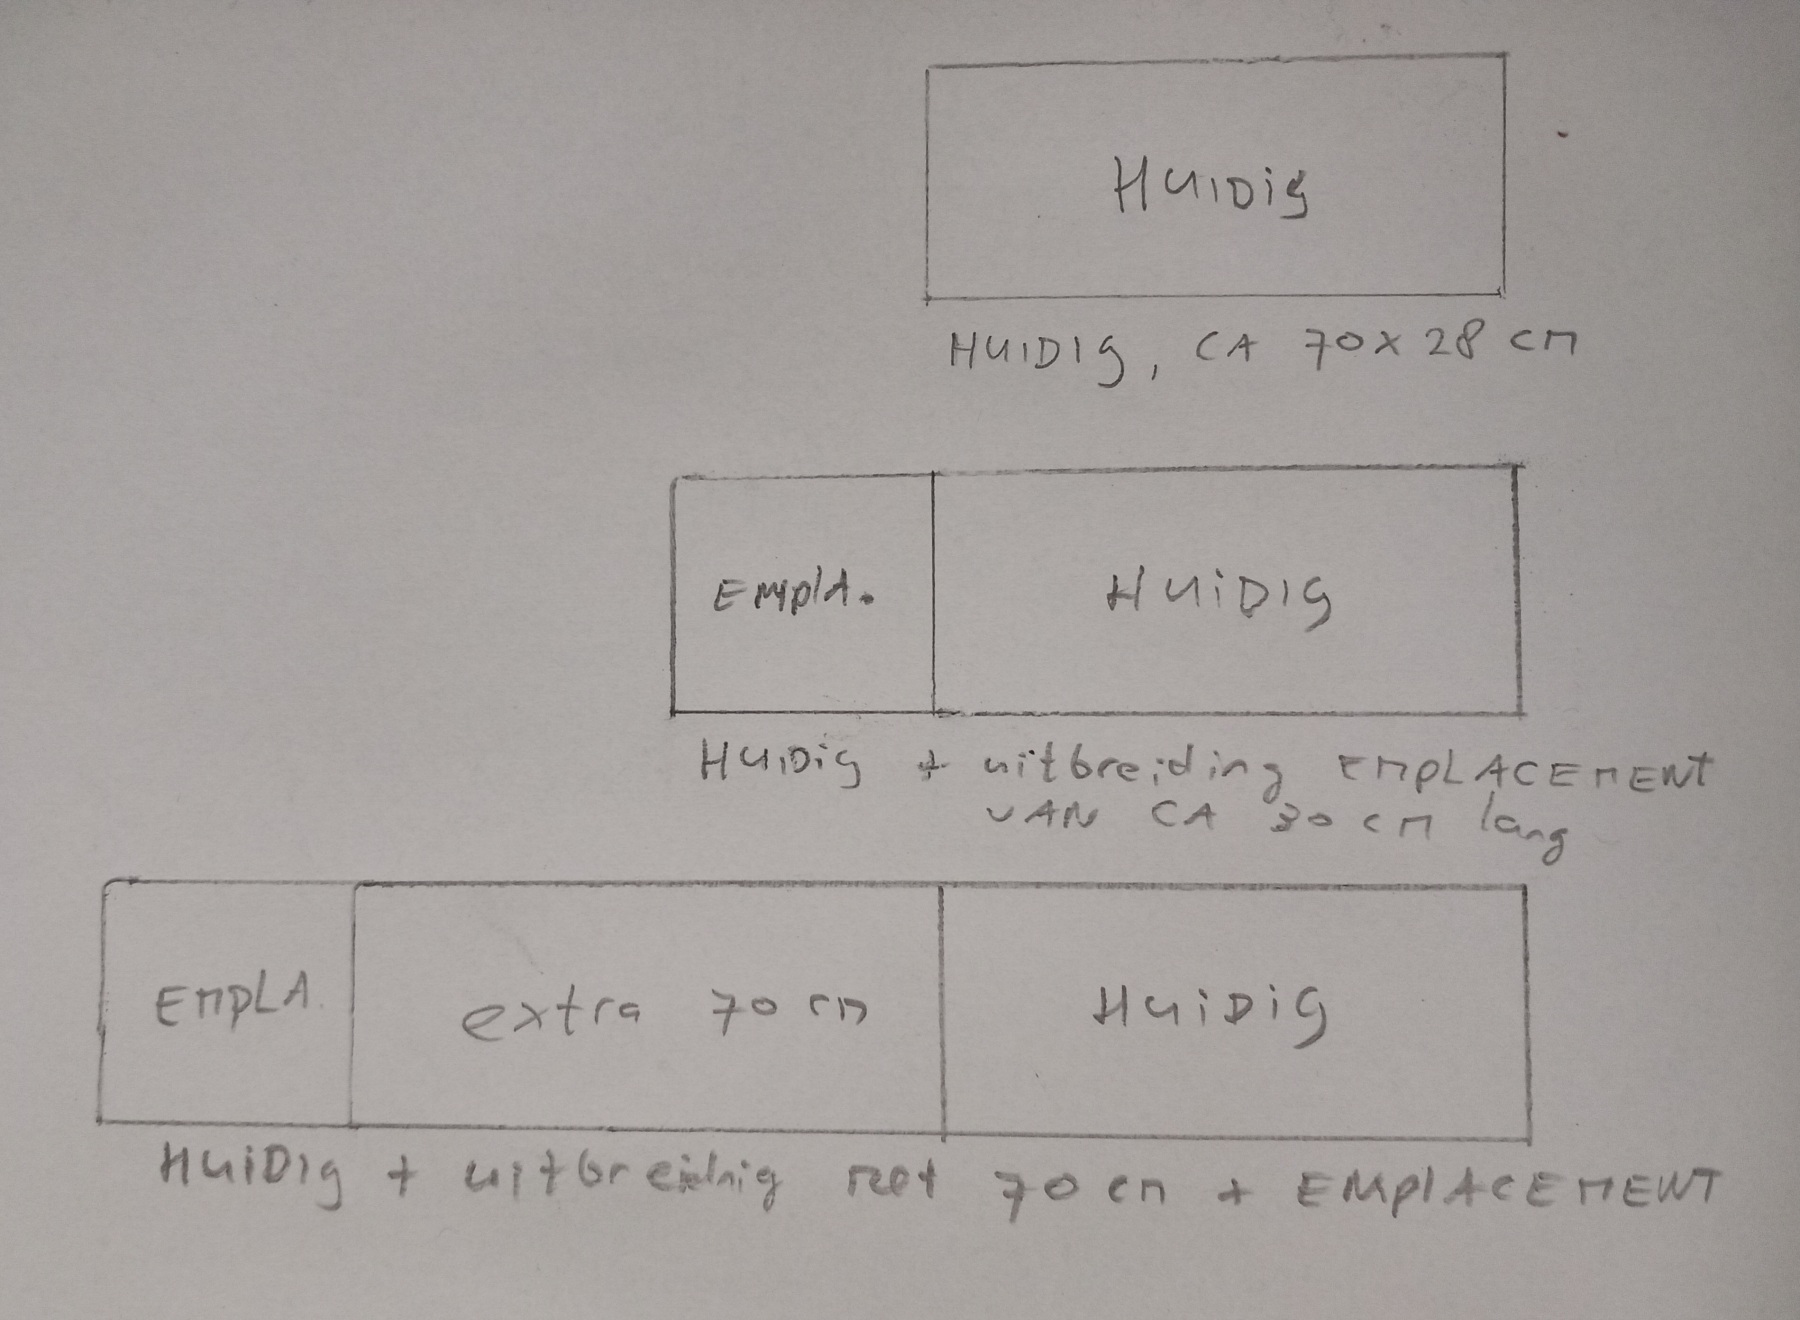 HUIDIG
HUIDIG, CA 70 X 28 CM
EMPLA.
HUIDIG
HUIDIG + uitbreiding EMPLACEMENT
VAN CA 30 CM lang
EMPLA.
extra 70 cm
HUIDIG
HUIDIG + uitbreidnig met 70 cm + EMPLACEMENT